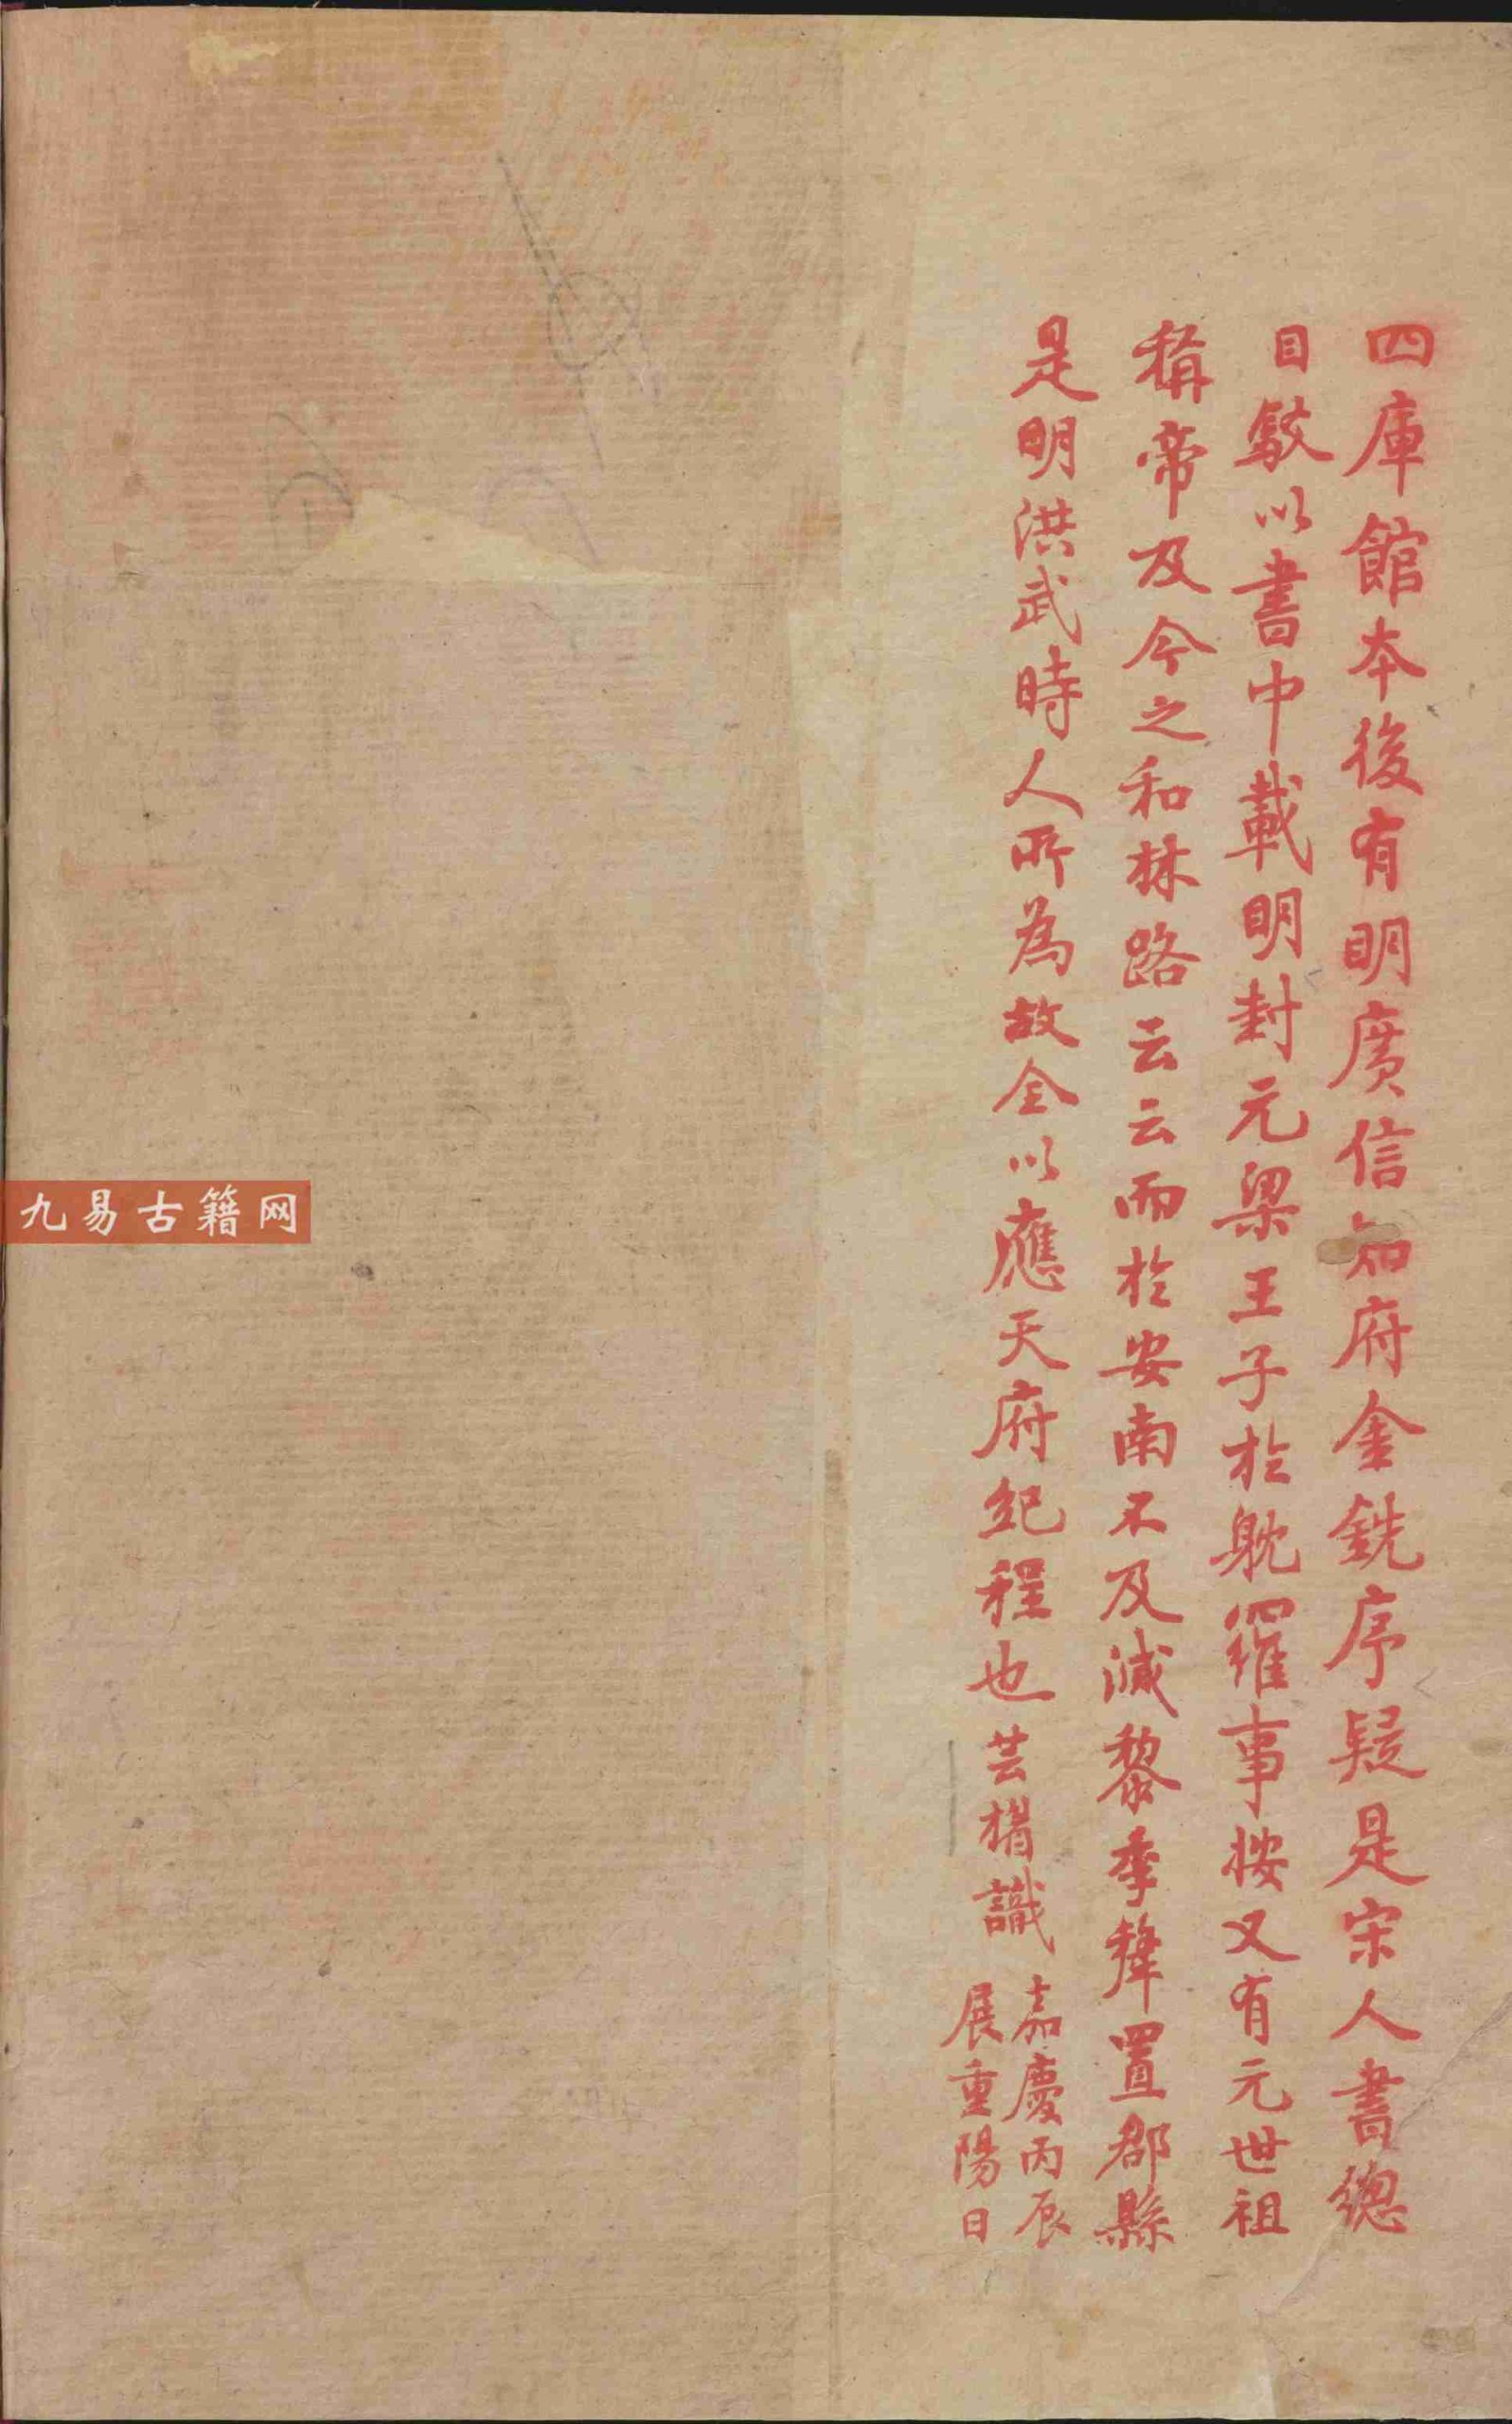 四庫館本後有明廣信知府金銑序疑是宋人書總
目駁以書中載明封元梁王子於躭羅事按又有元世祖
稱帝及今之和林路云云而於安南不及滅黎季犛置郡縣
是明洪武時人所為故全以應天府紀程也芸楣識
嘉慶丙辰
展重陽日
九易古籍网